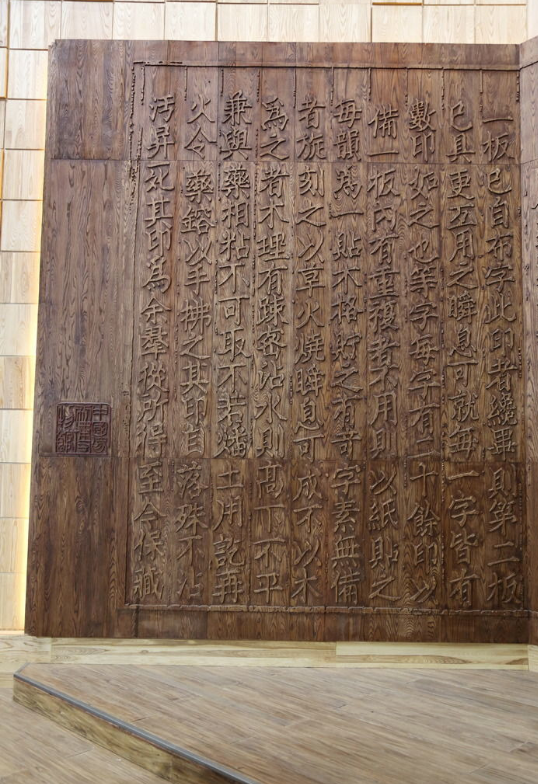 一板已自布字此印者纔畢則第二板
已具更互用之瞬息可就每一字皆有
數印如之也等字每字有二十餘印以
備一板內有重複者不用則以紙貼之
每韻爲一貼木格貯之有奇字素無備
者旋刻之以草火燒瞬息可成不以木
爲之者木理有疎密沾水則高下不平
兼與藥相粘不可取不若燔土用訖再
火令藥鎔以手拂之其印自落殊不沾
汚昇死其印爲余羣從所得至今保藏